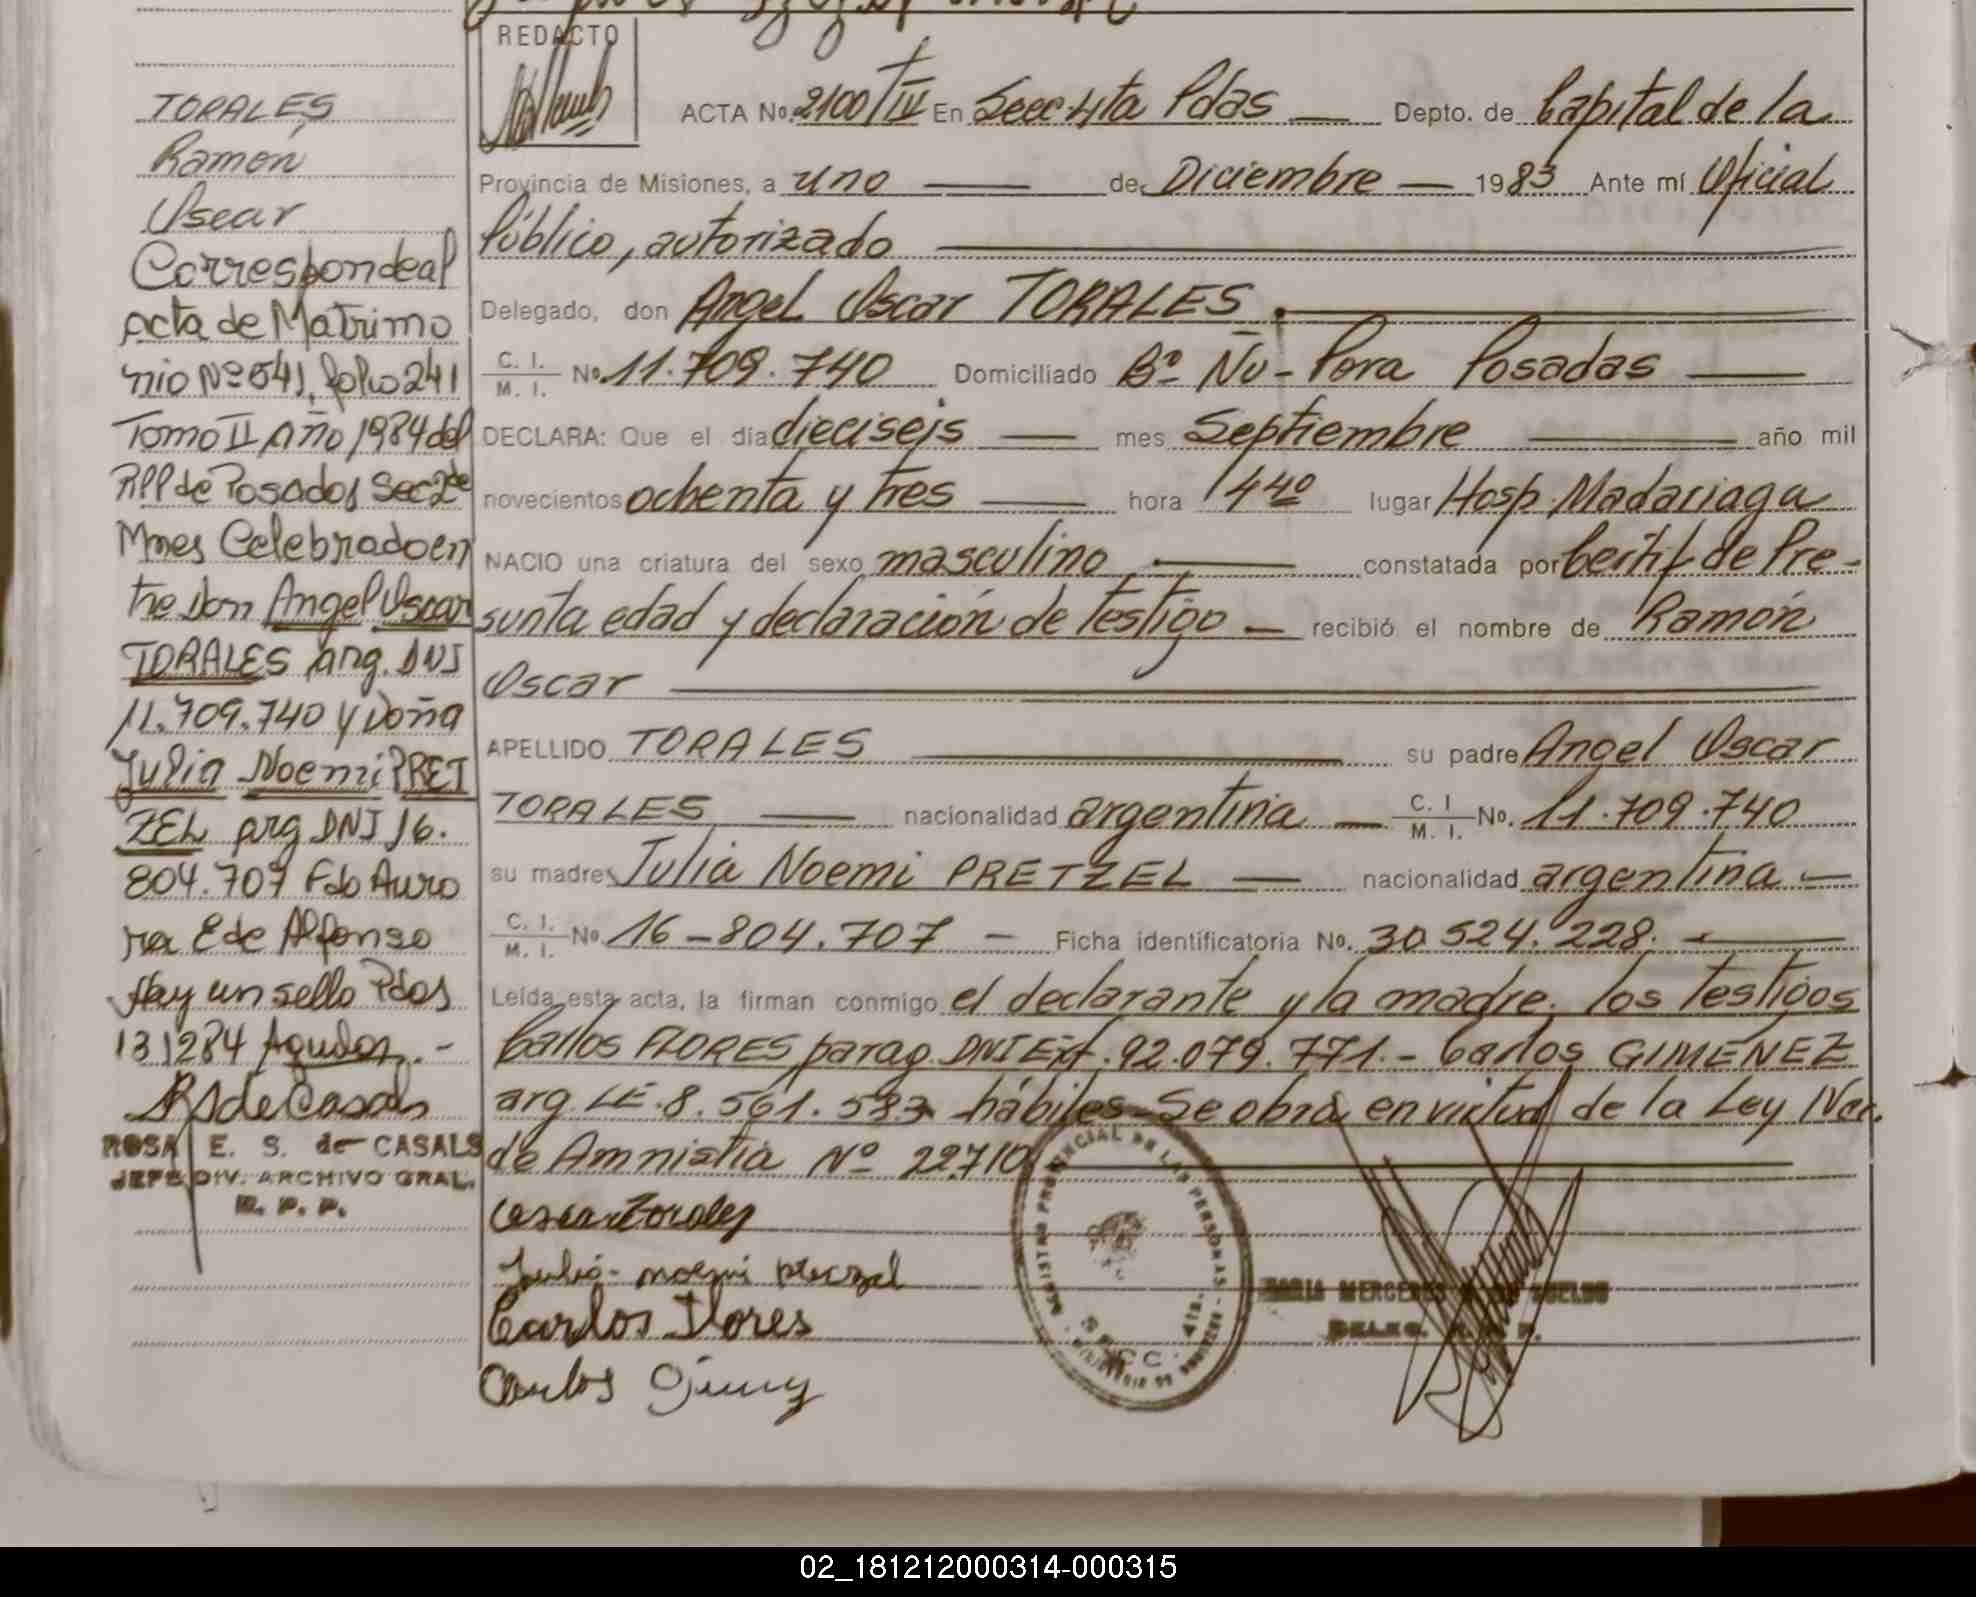 REDACTO
ACTA No. 2100/TIV En Secc. 4ta Pdas — Depto. de Capital de la
Provincia de Misiones, a uno — de Diciembre — 1983 Ante mí Oficial
Público, autorizado
Delegado, don Angel Oscar TORALES.
C. I. / M. I. No. 11.709.740 Domiciliado Bº Ñu-Pora Posadas —
DECLARA: Que el día dieciseis — mes Septiembre — año mil
novecientos ochenta y tres — hora 1440 lugar Hosp. Madariaga
NACIO una criatura del sexo masculino — constatada por Certif de Pre-
sunta edad y declaración de testigo — recibió el nombre de Ramón
Oscar
APELLIDO TORALES — su padre Angel Oscar
TORALES — nacionalidad argentina — C. I. / M. I. No. 11.709.740
su madre Julia Noemi PRETZEL — nacionalidad argentina —
C. I. / M. I. No. 16-804.707 — Ficha identificatoria No. 30.524.228.
Leída esta acta, la firman conmigo el declarante y la madre. los testigos
Carlos FLORES parag. DNI Ext. 92.079.771.- Carlos GIMENEZ
arg. LE. 8.561.583 hábiles. Se obra en virtud de la Ley Nac.
de Amnistía Nº 22.710
Oscar Torales
Julia noemi pretzel
Carlos Flores
Carlos
REGISTRO PROVINCIAL DE LAS PERSONAS
MARIA MERCEDES
TORALES
Ramón
Oscar
Corresponde al
acta de Matrimo
nio Nº 541, folio 241
Tomo II Año 1984 del
RPP de Posadas Sec 2da
Mnes Celebrado en
tre Don Angel Oscar
TORALES arg. DNI
11.709.740 y Doña
Julia Noemi PRET
ZEL arg DNI 16.
804.707 Fdo Auro
ra E de Alfonso
Hay un sello Pdas
131284
RS de Casals
ROSA E. S. de CASALS
JEFE DIV. ARCHIVO GRAL.
R. P. P.
02_181212000314-000315